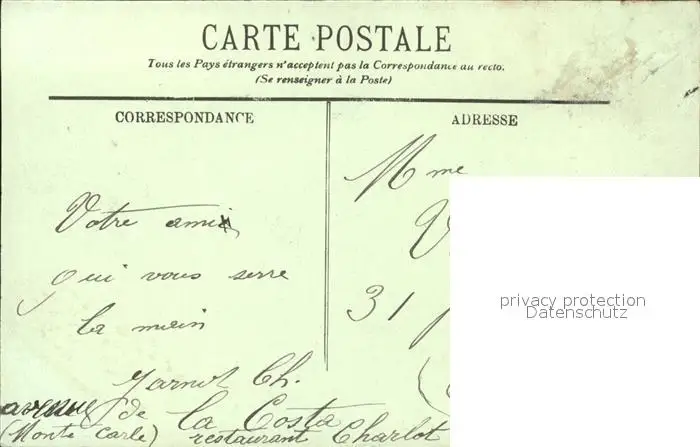 CARTE POSTALE
Tous les Pays étrangers n'acceptent pas la Correspondance au recto.
(Se renseigner à la Poste)
CORRESPONDANCE
ADRESSE
Mme
Votre ami
qui vous serre
la main
Ch.
31
privacy protection
Datenschutz
avenue de la Costa
(Monte Carle) restaurant Charlot